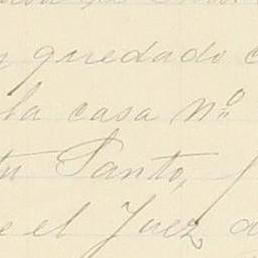 quedado
la casa nº
Santo,
e el Juez d